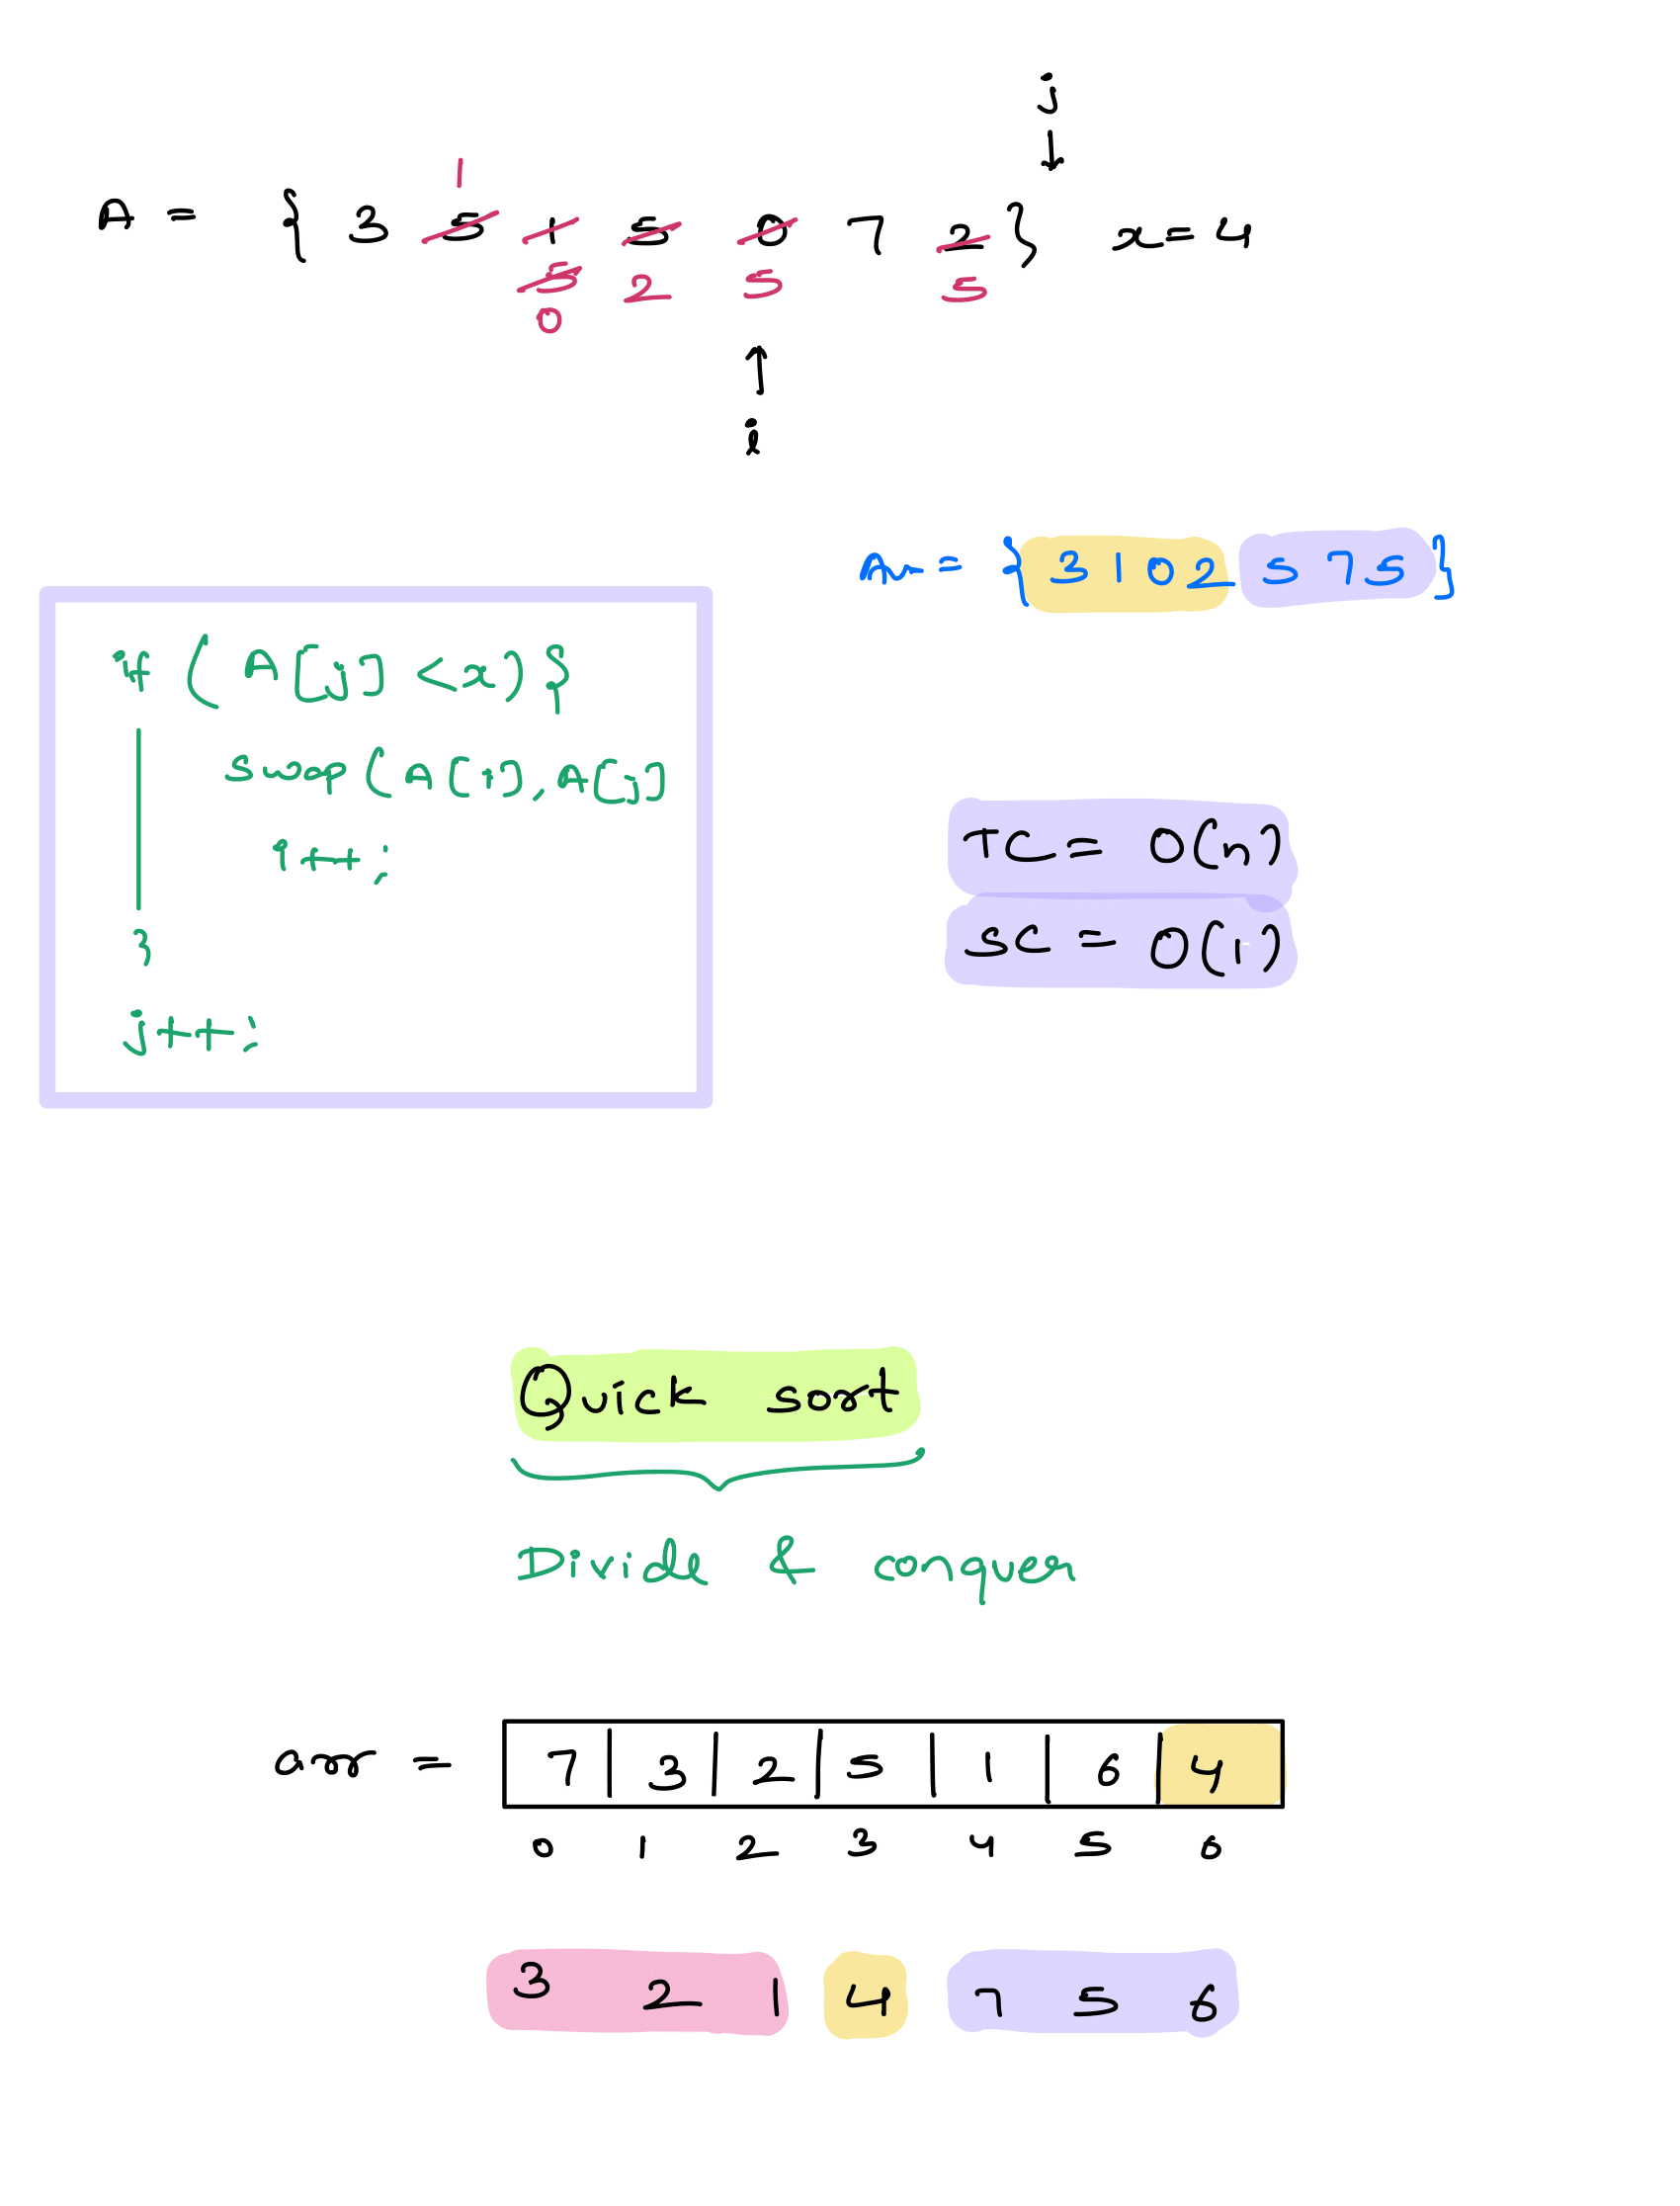 j
↓
1
A = { 3 5 1 5 0 7 2 } x=4
5 2 5 5
0
↑
i
An = { 3 1 0 2 5 7 5 }
if ( A[j] <x) }
swap ( A[i], A[j]
i++;
}
j++;
TC = O(n)
SC = O(1)
Quick sort
Divide & conquer
arr = 7 | 3 | 2 | 5 | 1 | 6 | 4
0 1 2 3 4 5 6
3 2 1 4 7 5 6